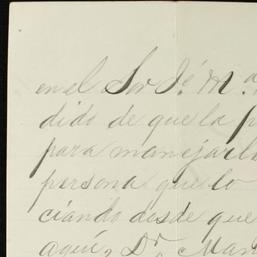 en el Sor Jé. M.a
dido de que la p
para manejarl
persona que lo
ciando desde que
aquí, Dn. Man